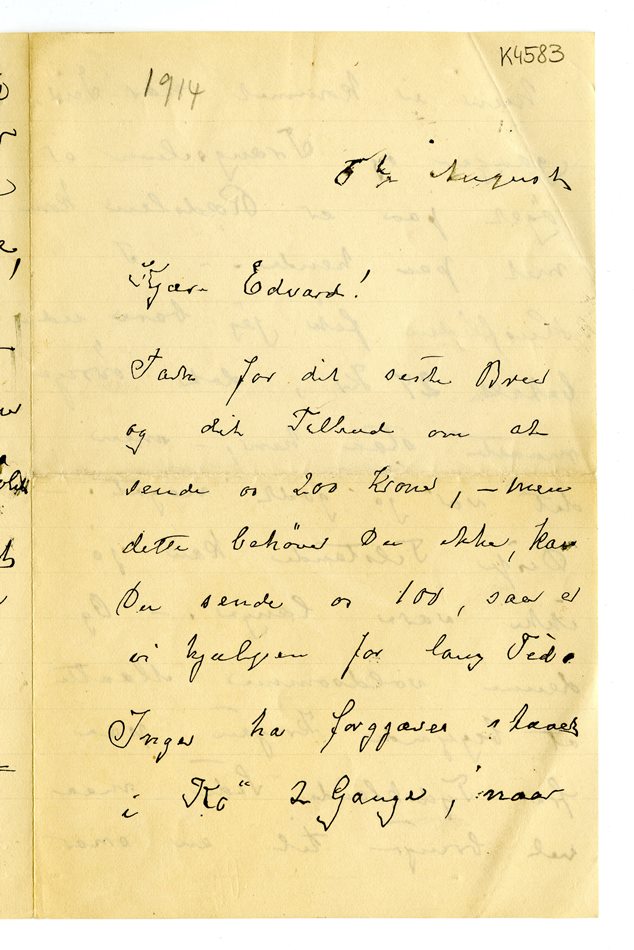 K4583
1914
5te August
Kjære Edvard!
Tak for dit siste Brev
og dit Tilbud om at
sende os 200 Kroner, – men
dette behöver Du ikke, kan
Du sende os 100, saa er
vi hjulpen for lang Tid.
Inger har forgjæves staaet
i "Kö" 2 Gange, naar